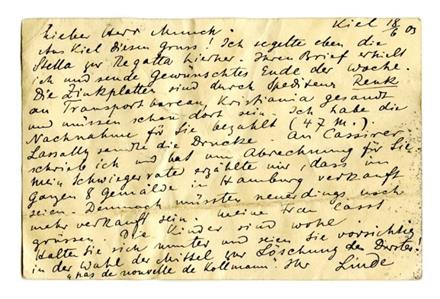 Kiel 18/6 03
Lieber Herr Munch.
Aus Kiel diesen Gruss! Ich segelte eben die
Stella zur Regatta hierher. Ihren Brief erhielt
ich und sende Gewünschtes Ende der Woche.
Die Zinkplatten sind durch Spediteur Renk
an Transportbureau, Kristiania gesandt
und müssen schon dort sein. Ich habe die
Nachnahme für Sie bezahlt (47 M.).
Lassally sandte die Drucke. An Cassirer
schrieb ich und bat um Abrechnung für Sie
Mein Schwiegervater erzählte mir, dass im
Ganzen 8 Gemälde in Hamburg verkauft
seien. Demnach müssten neuerdings noch
mehr verkauft sein. Meine Frau lässt
grüssen. Die Kinder sind wohl.
Halten Sie sich munter und seien Sie vorsichtig
in der Wahl der Mittel zur Löschung des Durstes!
"pas de nouvelle de Kollmann. Ihr Linde